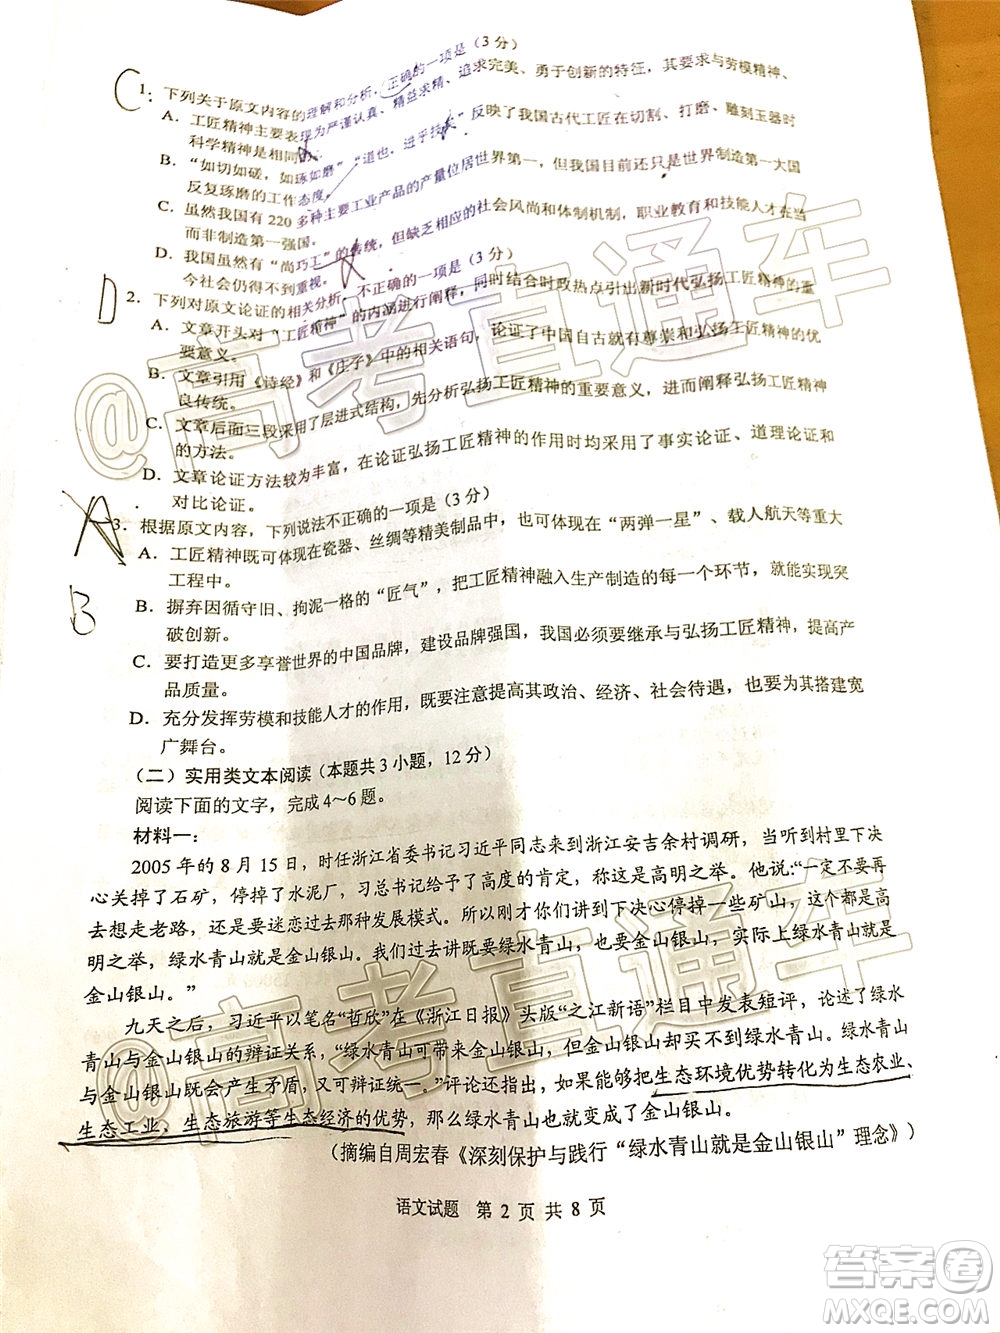 1．下列关于原文内容的理解和分析，正确的一项是（3分）
A．工匠精神主要表现为严谨认真、精益求精、追求完美、勇于创新的特征，其要求与劳模精神、
科学精神是相同的。
B．“如切如磋，如琢如磨”“道也，进乎技矣”反映了我国古代工匠在切割、打磨、雕刻玉器时
反复琢磨的工作态度。
C．虽然我国有220多种主要工业产品的产量位居世界第一，但我国目前还只是世界制造第一大国
而非制造第一强国。
D．我国虽然有“尚巧工”的传统，但缺乏相应的社会风尚和体制机制，职业教育和技能人才在当
今社会仍得不到重视。
2．下列对原文论证的相关分析，不正确的一项是（3分）
A．文章开头对“工匠精神”的内涵进行阐释，同时结合时政热点引出新时代弘扬工匠精神的重
要意义。
B．文章引用《诗经》和《庄子》中的相关语句，论证了中国自古就有尊崇和弘扬工匠精神的优
良传统。
C．文章后面三段采用了层进式结构，先分析弘扬工匠精神的重要意义，进而阐释弘扬工匠精神
的方法。
D．文章论证方法较为丰富，在论证弘扬工匠精神的作用时均采用了事实论证、道理论证和
对比论证。
3．根据原文内容，下列说法不正确的一项是（3分）
A．工匠精神既可体现在瓷器、丝绸等精美制品中，也可体现在“两弹一星”、载人航天等重大
工程中。
B．摒弃因循守旧、拘泥一格的“匠气”，把工匠精神融入生产制造的每一个环节，就能实现突
破创新。
C．要打造更多享誉世界的中国品牌，建设品牌强国，我国必须要继承与弘扬工匠精神，提高产
品质量。
D．充分发挥劳模和技能人才的作用，既要注意提高其政治、经济、社会待遇，也要为其搭建宽
广舞台。
（二）实用类文本阅读（本题共3小题，12分）
阅读下面的文字，完成4～6题。
材料一：
2005年的8月15日，时任浙江省委书记习近平同志来到浙江安吉余村调研，当听到村里下决
心关掉了石矿，停掉了水泥厂，习总书记给予了高度的肯定，称这是高明之举。他说：“一定不要再
去想走老路，还是要迷恋过去那种发展模式。所以刚才你们讲到下决心停掉一些矿山，这个都是高
明之举，绿水青山就是金山银山。我们过去讲既要绿水青山，也要金山银山，实际上绿水青山就是
金山银山。”
九天之后，习近平以笔名“哲欣”在《浙江日报》头版“之江新语”栏目中发表短评，论述了绿水
青山与金山银山的辩证关系，“绿水青山可带来金山银山，但金山银山却买不到绿水青山。绿水青山
与金山银山既会产生矛盾，又可辩证统一。”评论还指出，如果能够把这些生态环境优势转化为生态农业、
生态工业、生态旅游等生态经济的优势，那么绿水青山也就变成了金山银山。
（摘编自周宏春《深刻保护与践行“绿水青山就是金山银山”理念》）
语文试题 第2页 共8页
C
D
A
B
@高考直通车
@高考直通车
答案圈
MXQE.COM